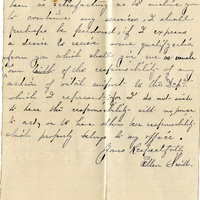 been so satisfactory as to induce you
to continue my services, I shall
perhaps be pardoned, if I express
a desire to receive some
from you which shall give me as much
credit of the responsibility of any
action of vital import to the Dept.
which I represent for I do not wish
to have the responsibility without power
to act, or to have others bear responsibility
which properly belongs to my office.
Yours Respectfully
Ellen Smith.